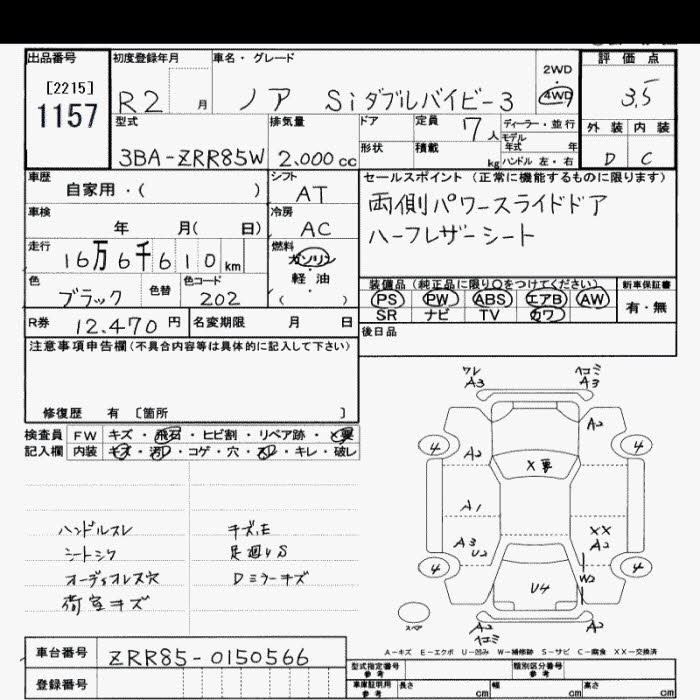 出品番号 初度登録年月 車名・グレード 評価点
[2215]
1157
R2 月 ノア Siダブルバイビー3 2WD 4WD 3.5
型式 排気量 ドア 定員 7人 ディーラー・並行 外装 内装
モデル年式 年
3BA-ZRR85W 2.000cc 形状 積載 kg ハンドル 左・右 D C
車歴 シフト セールスポイント (正常に機能するものに限ります)
自家用・( ) AT 両側パワースライドドア
車検 冷房
年 月( 日) AC ハーフレザーシート
走行 燃料
16万6千610km ガソリン・軽油
( )
装備品 (純正品に限り○をつけてください) 新車保証書
色 色替 色コード
ブラック 202
PS PW ABS エアB AW 有・無
SR ナビ TV カワ
R券 12.470円 名変期限 月 日 後日品
注意事項申告欄(不具合内容等は具体的に記入して下さい)
修復歴 有 〔箇所 〕
検査員 FW キズ・飛石・ヒビ割・リペア跡・×要
記入欄 内装 キズ・汚れ・コゲ・穴・スレ・キレ・破レ
ワレ ヘコミ
A3 A3
A2
4 A2 4
×要
A1
XX
A3 A2
U2
4 W2 4
U4
スペア
A2 A2
ヘコミ
ハンドルスレ キズ,E
シートシワ 足廻りS
オーディオレス穴 Dミラーキズ
荷室キズ
A-キズ E-エクボ U-凹み W-補修跡 S-サビ C-腐食 XX-交換済
車台番号 ZRR85-0150566
登録番号
型式指定番号 参考 類別区分番号 参考
車庫証明用 参考 長さ cm 幅 cm 高さ cm